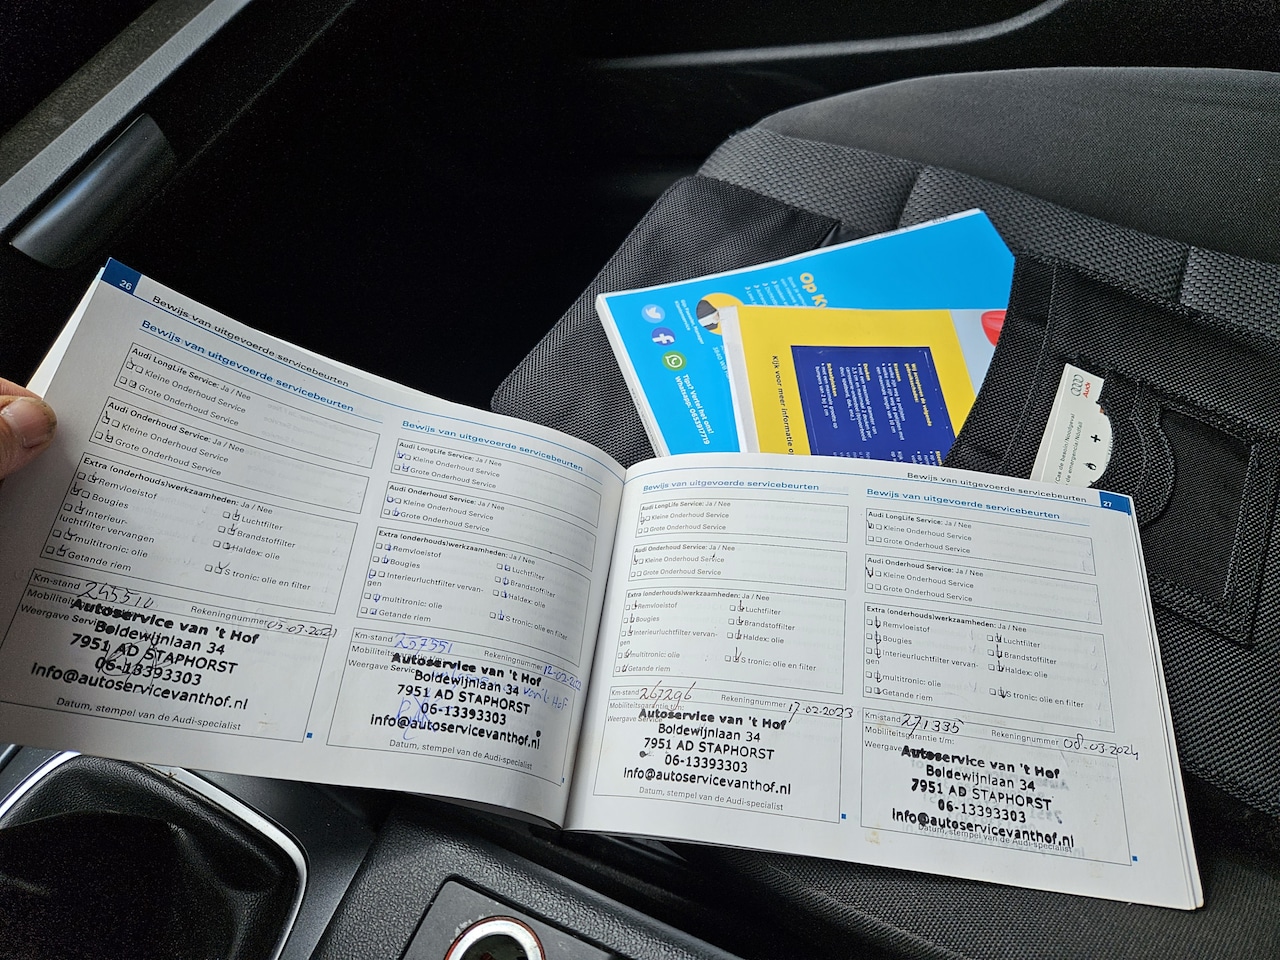 26
Bewijs van uitgevoerde servicebeurten
Bewijs van uitgevoerde servicebeurten
Audi LongLife Service: Ja / Nee
Kleine Onderhoud Service
Grote Onderhoud Service
Audi Onderhoud Service: Ja / Nee
Kleine Onderhoud Service
Grote Onderhoud Service
Extra (onderhouds)werkzaamheden: Ja / Nee
Remvloeistof
Luchtfilter
Bougies
Brandstoffilter
Interieur-
luchtfilter vervangen
Haldex: olie
multitronic: olie
S tronic: olie en filter
Getande riem
Km-stand 245510
Rekeningnummer
Autoservice van 't Hof
Boldewijnlaan 34
7951 AD STAPHORST
06-13393303
info@autoservicevanthof.nl
Datum, stempel van de Audi-specialist
Bewijs van uitgevoerde servicebeurten
Audi LongLife Service: Ja / Nee
Kleine Onderhoud Service
Grote Onderhoud Service
Audi Onderhoud Service: Ja / Nee
Kleine Onderhoud Service
Grote Onderhoud Service
Extra (onderhouds)werkzaamheden: Ja / Nee
Remvloeistof
Luchtfilter
Bougies
Brandstoffilter
Interieurluchtfilter vervan-
gen
Haldex: olie
multitronic: olie
S tronic: olie en filter
Getande riem
Km-stand 257551
Rekeningnummer
Weergave Service
Autoservice van 't Hof
Boldewijnlaan 34
7951 AD STAPHORST
06-13393303
info@autoservicevanthof.nl
Datum, stempel van de Audi-specialist
Bewijs van uitgevoerde servicebeurten
27
Bewijs van uitgevoerde servicebeurten
Audi LongLife Service: Ja / Nee
Kleine Onderhoud Service
Grote Onderhoud Service
Audi Onderhoud Service: Ja / Nee
Kleine Onderhoud Service
Grote Onderhoud Service
Extra (onderhouds)werkzaamheden: Ja / Nee
Remvloeistof
Luchtfilter
Bougies
Brandstoffilter
Interieurluchtfilter vervan-
gen
Haldex: olie
multitronic: olie
S tronic: olie en filter
Getande riem
Km-stand 267296
Rekeningnummer
Mobiliteitsgarantie t/m: 17-02-2023
Weergave Service
Autoservice van 't Hof
Boldewijnlaan 34
7951 AD STAPHORST
06-13393303
info@autoservicevanthof.nl
Datum, stempel van de Audi-specialist
Bewijs van uitgevoerde servicebeurten
Audi LongLife Service: Ja / Nee
Kleine Onderhoud Service
Grote Onderhoud Service
Audi Onderhoud Service: Ja / Nee
Kleine Onderhoud Service
Grote Onderhoud Service
Extra (onderhouds)werkzaamheden: Ja / Nee
Remvloeistof
Luchtfilter
Bougies
Brandstoffilter
Interieurluchtfilter vervan-
gen
Haldex: olie
multitronic: olie
S tronic: olie en filter
Getande riem
Km-stand 271335
Rekeningnummer
Mobiliteitsgarantie t/m: 08-03-2024
Weergave
Autoservice van 't Hof
Boldewijnlaan 34
7951 AD STAPHORST
06-13393303
info@autoservicevanthof.nl
Datum, stempel van de Audi-specialist
Op
Tips? Vertel het ons!
Whatsapp: 0633917719
Kijk voor meer informatie
Audi